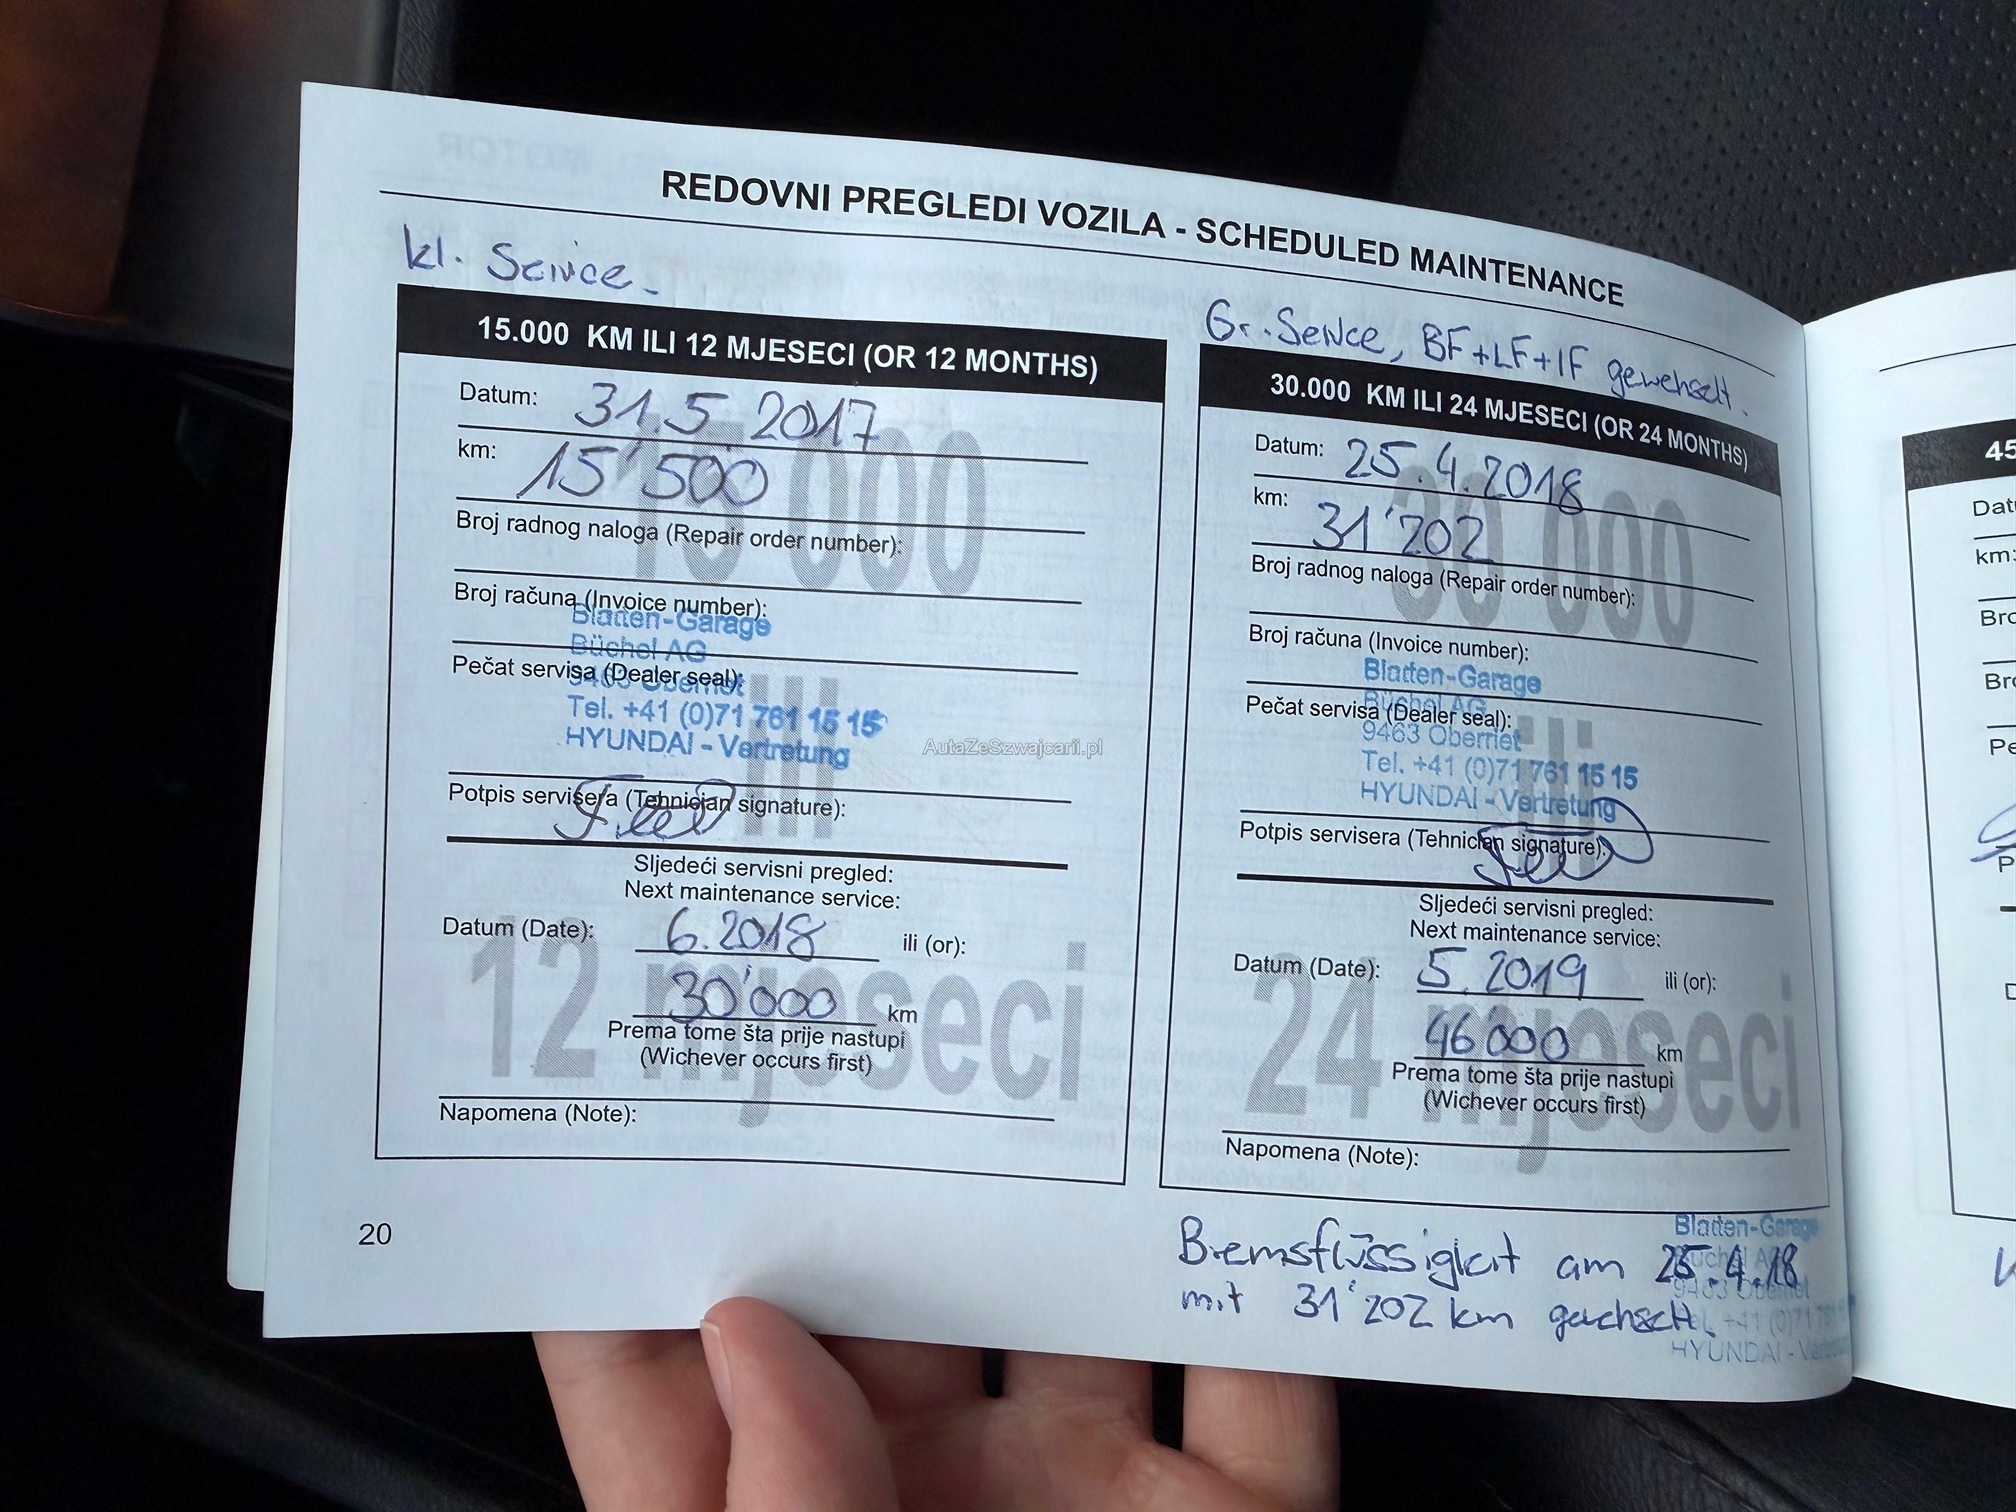 REDOVNI PREGLEDI VOZILA - SCHEDULED MAINTENANCE
kl. Service
15.000 KM ILI 12 MJESECI (OR 12 MONTHS)
Datum: 31.5.2017
km: 15'500
15 000
Broj radnog naloga (Repair order number):
Broj računa (Invoice number):
Blatten-Garage
Büchel AG
Pečat servisa (Dealer seal):
9463 Oberriet
Tel. +41 (0)71 761 15 15
HYUNDAI - Vertretung
ili
Potpis servisera (Tehnician signature):
Sljedeći servisni pregled:
Next maintenance service:
Datum (Date): 6.2018 ili (or):
30'000 km
12 mjeseci
Prema tome šta prije nastupi
(Wichever occurs first)
Napomena (Note):
20
Gr. Service, BF+LF+IF gewechselt.
30.000 KM ILI 24 MJESECI (OR 24 MONTHS)
Datum: 25.4.2018
km: 31'202
30 000
Broj radnog naloga (Repair order number):
Broj računa (Invoice number):
Blatten-Garage
Büchel AG
Pečat servisa (Dealer seal):
9463 Oberriet
Tel. +41 (0)71 761 15 15
HYUNDAI - Vertretung
ili
Potpis servisera (Tehnician signature):
Sljedeći servisni pregled:
Next maintenance service:
Datum (Date): 5.2019 ili (or):
46'000 km
24 mjeseci
Prema tome šta prije nastupi
(Wichever occurs first)
Napomena (Note):
Bremsflüssigkeit am 25.4.18
mit 31'202 km gewechselt.
Blatten-Garage
Büchel AG
9463 Oberriet
Tel. +41 (0)71 761
HYUNDAI -
AutaZeSzwajcarii.pl
45
km: